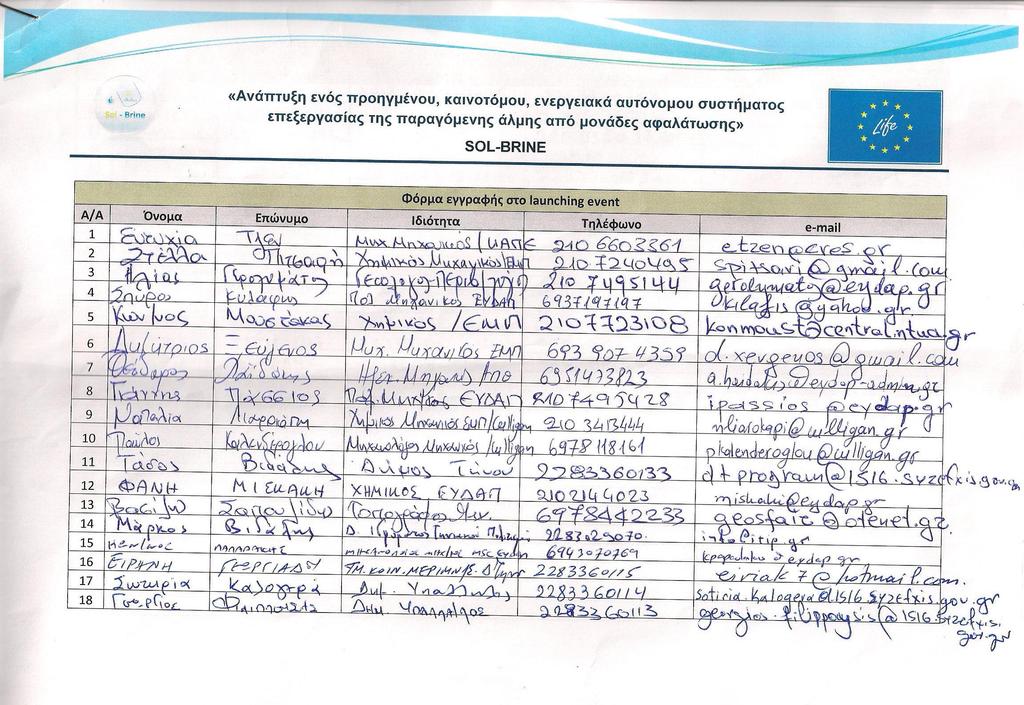 Sol - Brine
«Ανάπτυξη ενός προηγμένου, καινοτόμου, ενεργειακά αυτόνομου συστήματος
επεξεργασίας της παραγόμενης άλμης από μονάδες αφαλάτωσης»
SOL-BRINE
Life
Φόρμα εγγραφής στο launching event
Α/Α Όνομα Επώνυμο Ιδιότητα Τηλέφωνο e-mail
1 Ευτυχία Τζεν Μηχ. Μηχανικός/ 210 6603361 etzen@cres.gr
2 Στέλλα Πιτσαρή Χημικός Μηχανικός/ΕΜΠ 210 7240495 spitsari@gmail.com
3 Ηλίας 210 7495144 gerolymato@eydap.gr
4 Σπύρος Κυλάφης Πολ Μηχανικος ΕΥΔΑΠ 6937197197 kilafis@yahoo.gr
5 Κων/νος Μουστάκας Χημικός /ΕΜΠ 2107723108 konmoust@central.ntua.gr
6 Δημήτριος Ξευγένος Μηχ. Μηχανικός ΕΜΠ 693 907 4359 d.xevgenos@gmail.com
7 Θεόδωρος 6951473823
8 Γιάννης Πάσσιος Πολ. Μηχ/κος ΕΥΔΑΠ 2107495428 ipassios@eydap.gr
9 Ναταλία Λιαροτάπη Χημικός Μηχανικός ΕΜΠ/Culligan 210 3413444 nliarotapi@culligan.gr
10 Παύλος Καλεντέρογλου Μηχανολόγος Μηχανικός/Culligan 6978118161 pkalenderoglou@culligan.gr
11 Τάσος Βιδάλης Δήμος Τήνου 2283360133 dtprogram@1516.syzefxis.gov.gr
12 ΦΑΝΗ ΜΙΣΚΑΚΗ ΧΗΜΙΚΟΣ ΕΥΔΑΠ 2102144023 miskaki@eydap.gr
13 6978442233 geosfair@otenet.gr
14 Μάρκος Βιδάλης 2283029070. info@itip.gr
15 6943070769
16 ΕΙΡΗΝΗ ΓΕΩΡΓΙΑΔΟΥ ΤΜ. ΚΟΙΝ. ΜΕΡΙΜΝΑΣ Δ. Τήνου 2283360115 eiriak7@hotmail.com.
17 Σωτηρία Καλογερά Δημ. Υπάλληλος 2283360114 sotiria.kalogera@1516.syzefxis.gov.gr
18 Γεώργιος Φιλιππούσης Δημ. Υπάλληλος 2283360113 georgios.filippoysis@1516.syzefxis.
gov.gr